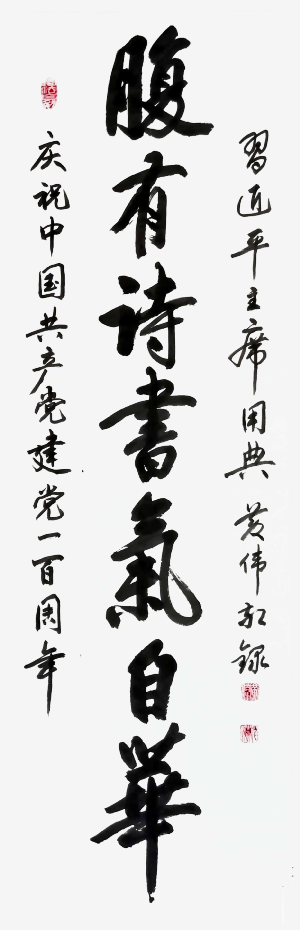 庆祝中国共产党建党一百周年
腹有詩書氣自華
習近平主席用典 黄伟敬録